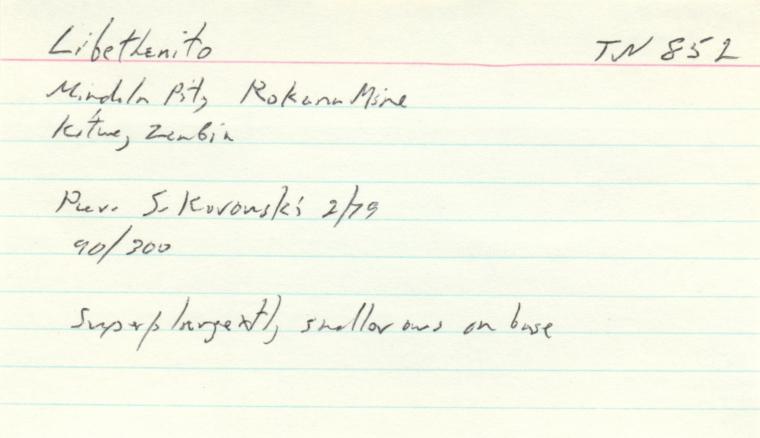 Libethenite TN 852
Mindola Pit, Rokana Mine
Kitwe, Zambia
Pur. S. Kurowski 2/79
90/300
Superb large xtl, smaller ones on base